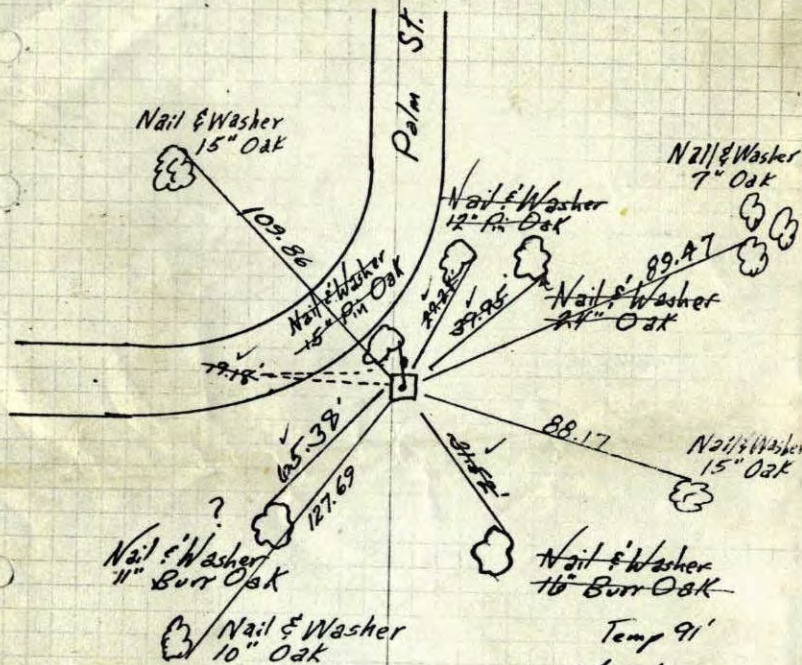 Palm St.
Nail & Washer
15" Oak
109.86
Nail & Washer
12" Pin Oak
Nail & Washer
7" Oak
89.47
Nail & Washer
15" Pin Oak
39.95
Nail & Washer
24" Oak
79.18'
65.38'
127.69
88.17
Nail & Washer
15" Oak
?
Nail & Washer
11" Burr Oak
Nail & Washer
16" Burr Oak
Nail & Washer
10" Oak
Temp 91'